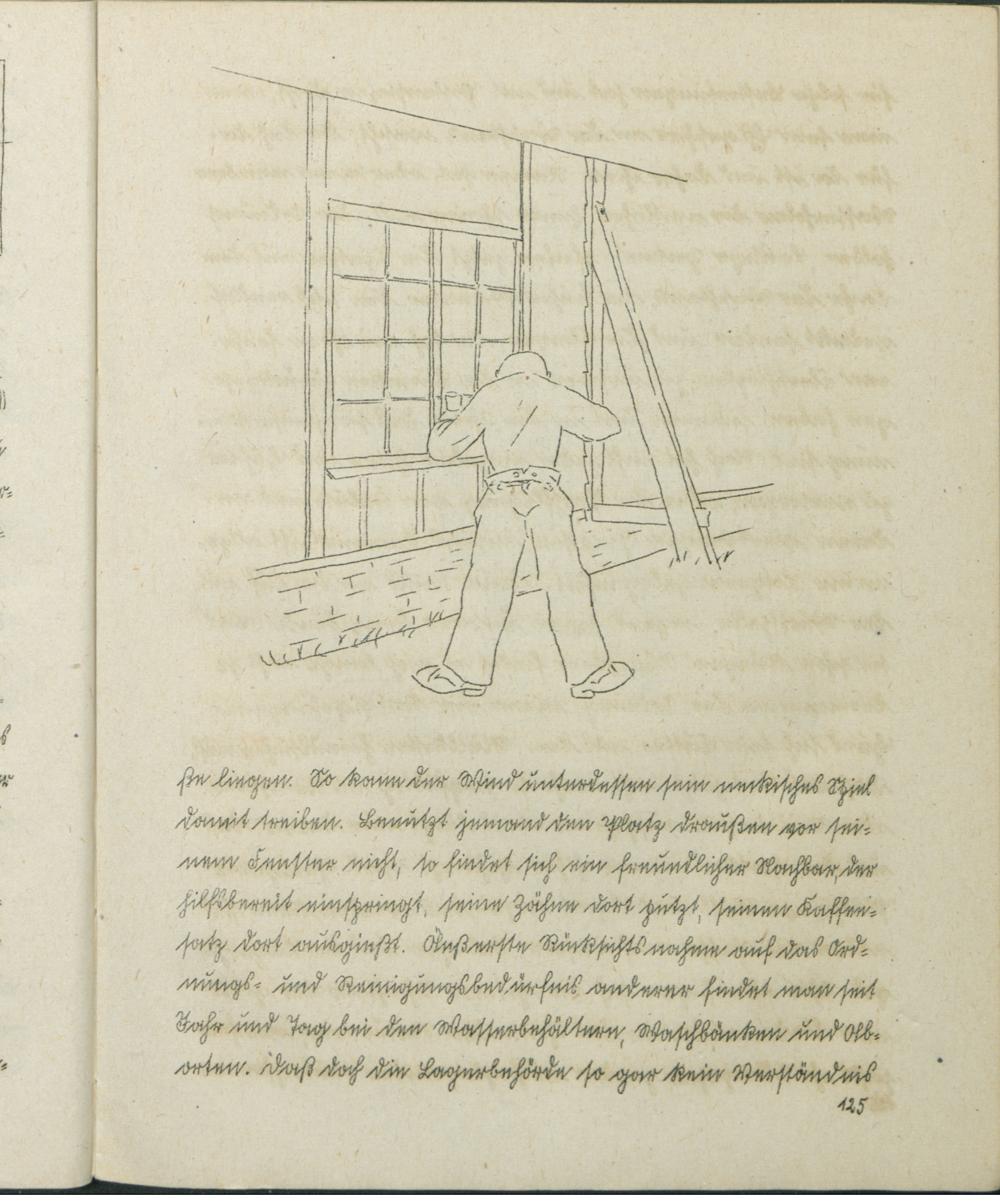 ße liegen. So kann der Wind unterdessen sein neckisches Spiel
damit treiben. Benutzt jemand den Platz draußen vor sei=
nem Fenster nicht, so findet sich ein freundlicher Nachbar, der
hilfsbereit einspringt, seine Zähne dort putzt, seinen Kaffee=
satz dort ausgießt. Äußerste Rücksichtsnahme auf das Ord=
nungs= und Reinigungsbedürfnis anderer findet man seit
Jahr und Tag bei den Wasserbehältern, Waschbänken und Ab=
orten. Daß doch die Lagerbehörde so gar kein Verständnis
125